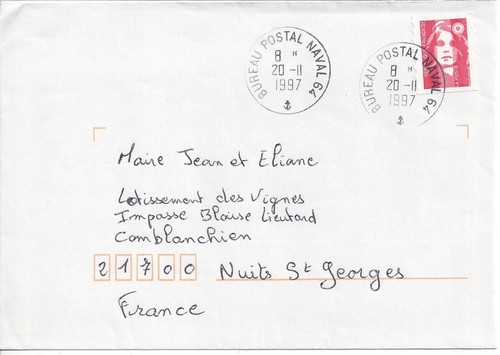 BUREAU POSTAL NAVAL 64
8 H
20-11
1997
BUREAU POSTAL NAVAL 64
8 H
20-11
1997
Maire Jean et Eliane
Lotissement des Vignes
Impasse Blaise Lieutard
Comblanchien
21700 Nuits St Georges
France